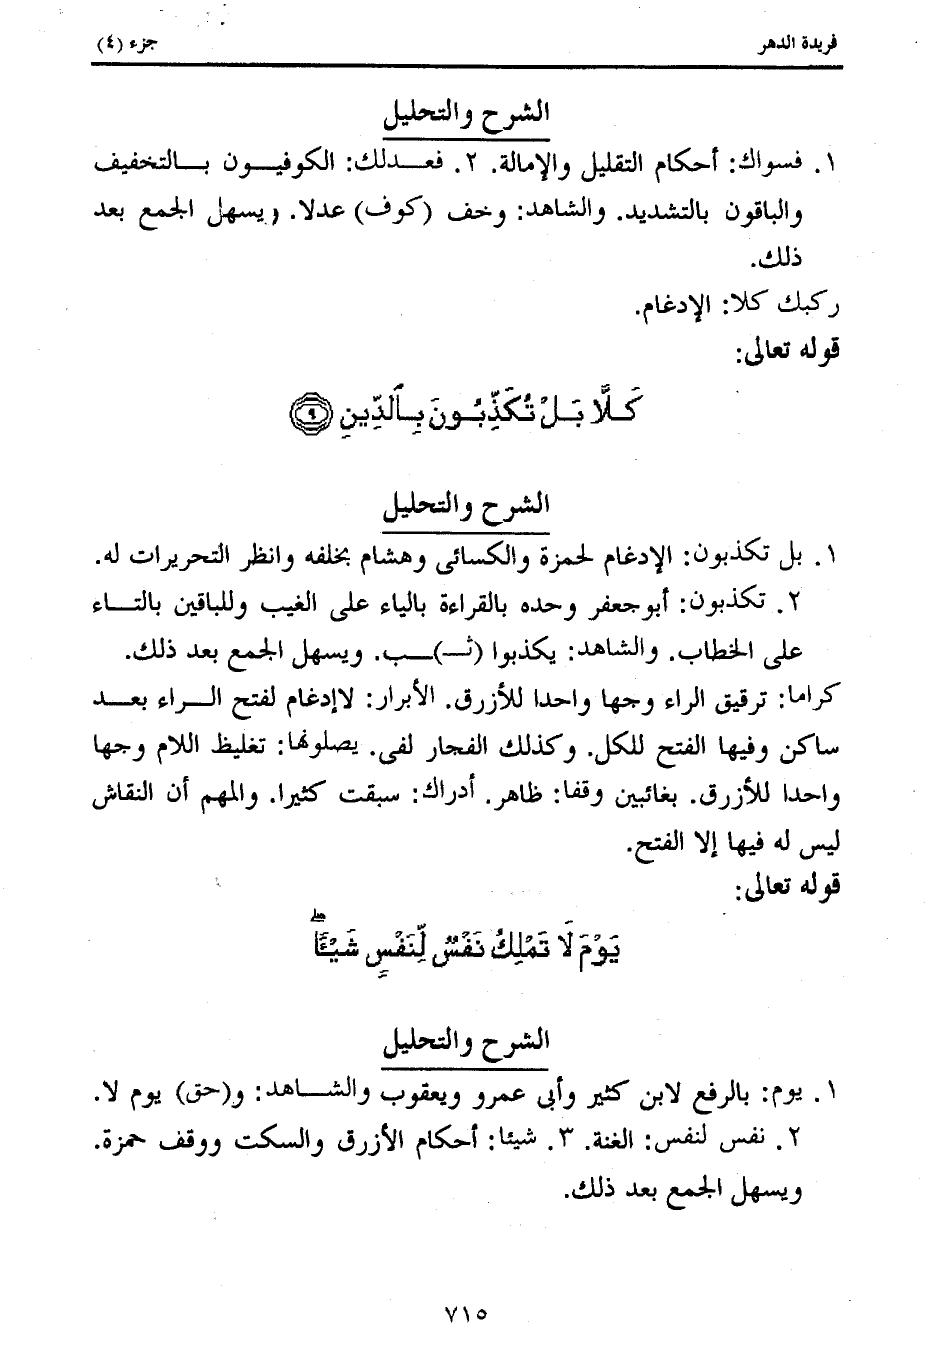 فريدة الدهر
جزء (٤)
الشرح والتحليل
١. فسواك: أحكام التقليل والإمالة. ٢. فعـدلك: الكوفيـون بـالتخفيف
والباقون بالتشديد. والشاهد: وخف (كوف) عدلا. ويسهل الجمع بعد
ذلك.
ركبك كلا: الإدغام.
قوله تعالى:
كَلَّا بَلْ تُكَذِّبُونَ بِالدِّينِ ٩
الشرح والتحليل
١. بل تكذبون: الإدغام لحمزة والكسائى وهشام بخلفه وانظر التحريرات له.
٢. تكذبون: أبوجعفر وحده بالقراءة بالياء على الغيب وللباقين بالتـاء
على الخطاب. والشاهد: يكذبوا (ثـ)ـب. ويسهل الجمع بعد ذلك.
كراما: ترقيق الراء وجها واحدا للأزرق. الأبرار: لاإدغام لفتح الـراء بعـد
ساكن وفيها الفتح للكل. وكذلك الفجار لفى. يصلونها: تغليظ اللام وجها
واحدا للأزرق. بغائبين وقفا: ظاهر. أدراك: سبقت كثيرا. والمهم أن النقاش
ليس له فيها إلا الفتح.
قوله تعالى:
يَوْمَ لَا تَمْلِكُ نَفْسٌ لِّنَفْسٍ شَيْـًٔاۖ
الشرح والتحليل
١. يوم: بالرفع لابن كثير وأبى عمرو ويعقوب والشـاهد: و(حق) يوم لا.
٢. نفس لنفس: الغنة. ٣. شيئا: أحكام الأزرق والسكت ووقف حمزة.
ويسهل الجمع بعد ذلك.
٧١٥